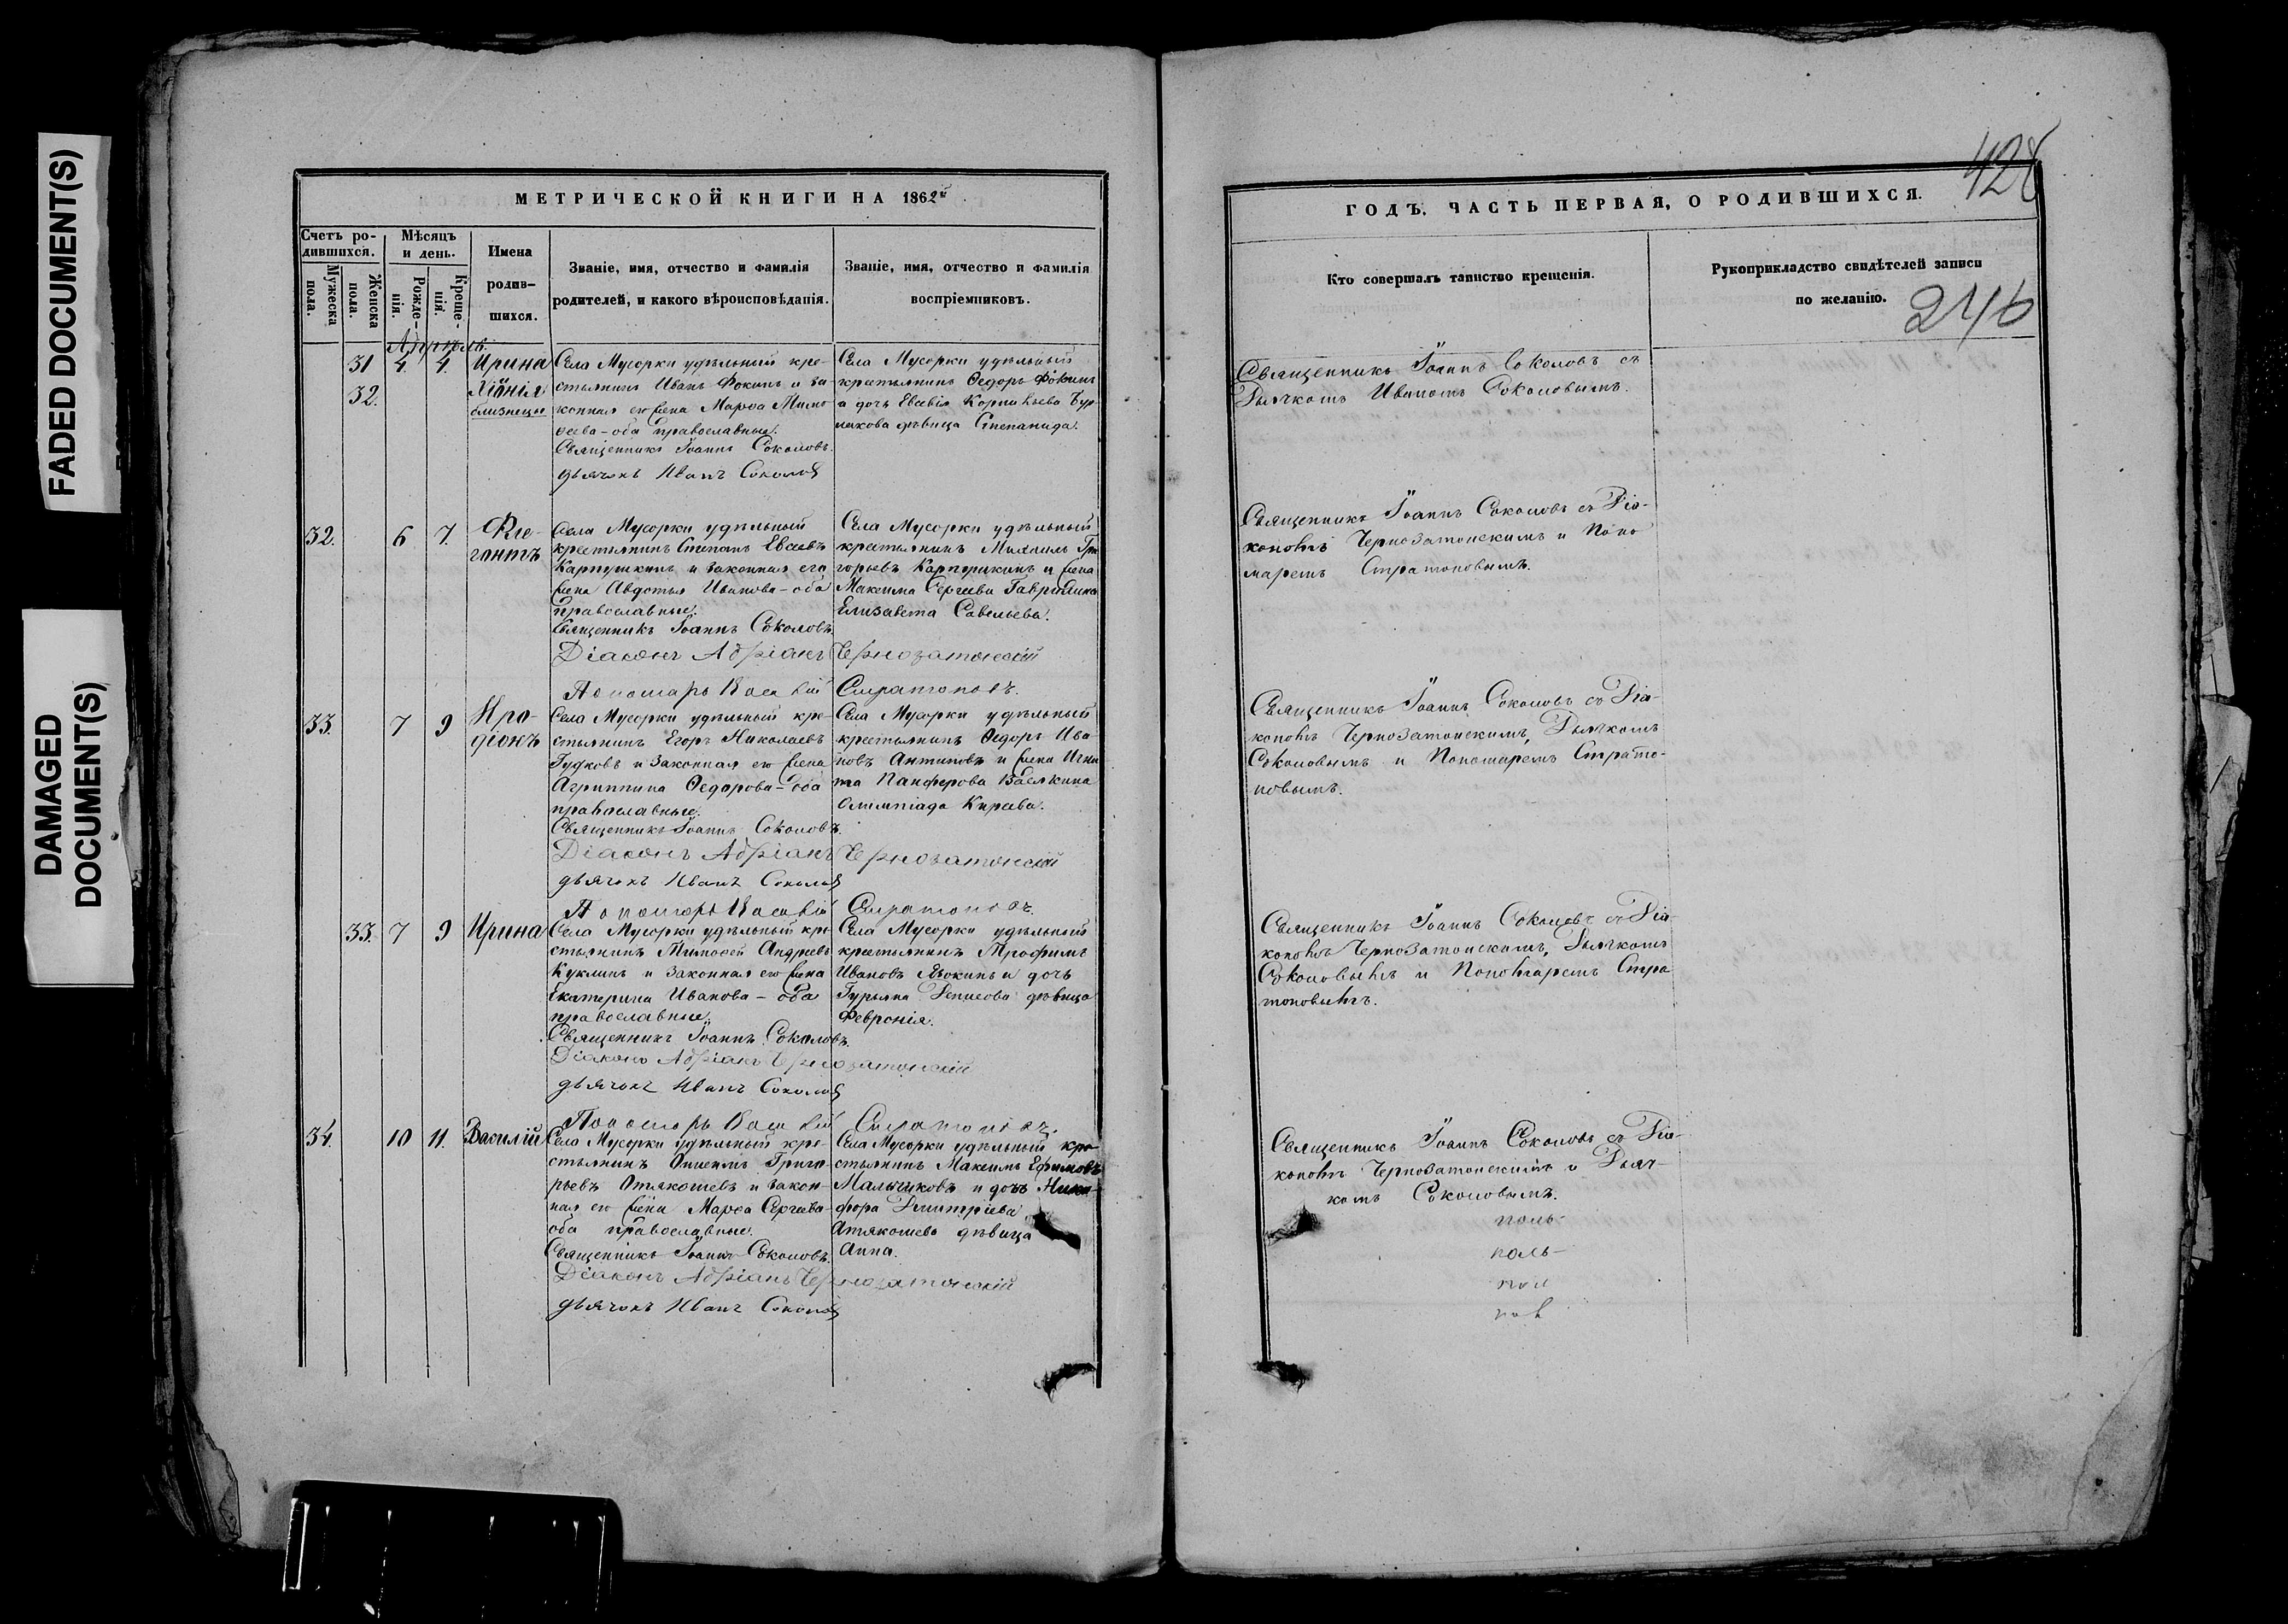 FADED DOCUMENT(S)
DAMAGED
DOCUMENT(S)
МЕТРИЧЕСКОЙ КНИГИ НА 1862й
Счетъ ро-
дившихся.
Мужеска
пола.
Женска
пола.
Мѣсяцъ
и день.
Рожде-
нія.
Креще-
нія.
Имена
родив-
шихся.
Званіе, имя, отчество и фамилія
родителей, и какого вѣроисповѣданія.
Званіе, имя, отчество и фамилія
воспріемниковъ.
Апрѣль
31 4. 4. Ирина
32. Хіонія
близнецы
Села Мусорки удѣльный кре-
стьянинъ Иванъ Фокинъ и за-
конная его жена Марѳа Тимо
ѳеева - оба православные.
Священникъ Іоаннъ Соколовъ.
дьячокъ Иванъ Соколов
Села Мусорки удѣльный
крестьянинъ Ѳедоръ Фокинъ
и дочь Евсевія Корнильева
дѣвица Степанида.
32. 6 7.
Села Мусорки удѣльный
крестьянинъ Степанъ Евсеевъ
Карпушкинъ и законная его
жена Авдотья Иванова - оба
православные.
Священникъ Іоаннъ Соколовъ.
Діаконъ Адріанъ Чернозатонскій
Пономарь Василій Стратоновъ.
Села Мусорки удѣльный
крестьянинъ Михаилъ Гри
горьевъ Карпушкинъ и жена
Максима Сергеева
Елизавета Савельева.
33. 7 9 Иро-
діонъ
Села Мусорки удѣльный кре-
стьянинъ Егоръ Николаевъ
Гудковъ и законная его жена
Агриппина Ѳедорова - оба
православные.
Священникъ Іоаннъ Соколовъ.
Діаконъ Адріанъ Чернозатонскій
дьячокъ Иванъ Соколов
Пономарь Василій Стратоновъ.
Села Мусорки удѣльный
крестьянинъ Ѳедоръ Ива-
новъ Антиповъ и жена Игна
та Панферова
Олимпіада Киреева.
33. 7 9 Ирина
Села Мусорки удѣльный кре
стьянинъ Тимоѳей Андреевъ
Куклинъ и законная его жена
Екатерина Иванова - оба
православные.
Священникъ Іоаннъ Соколовъ.
Діаконъ Адріанъ Чернозатонскій
дьячокъ Иванъ Соколов
Пономарь Василій Стратоновъ.
Села Мусорки удѣльный
крестьянинъ Трофимъ
Ивановъ и дочь
Гурьяна Денисова дѣвица
Февронія.
34. 10 11. Василій
Села Мусорки удѣльный кре-
стьянинъ Онисимъ Григо-
рьевъ Отякошевъ и закон-
ная его жена Марѳа Сергеева
оба православные.
Священникъ Іоаннъ Соколовъ.
Діаконъ Адріанъ Чернозатонскій
дьячокъ Иванъ Соколов
Села Мусорки удѣльный кре-
стьянинъ Максимъ Ефимовъ
Мальчиковъ и дочь Ники-
фора Дмитріева
Атякошева дѣвица
Анна.
428
ГОДЪ. ЧАСТЬ ПЕРВАЯ, О РОДИВШИХСЯ.
Кто совершалъ таинство крещенія.
Рукоприкладство свидѣтелей записи
по желанію.
246
Священникъ Іоаннъ Соколовъ съ
Дьячкомъ Иваномъ Соколовымъ.
Священникъ Іоаннъ Соколовъ съ Діа-
кономъ Чернозатонскимъ и Поно
маремъ Стратоновымъ.
Священникъ Іоаннъ Соколовъ съ Діа-
кономъ Чернозатонскимъ, Дьячкомъ
Соколовымъ и Пономаремъ Страто-
новымъ.
Священникъ Іоаннъ Соколовъ съ Діа-
кономъ Чернозатонскимъ, Дьячкомъ
Соколовымъ и Пономаремъ Стра
тоновымъ.
Священникъ Іоаннъ Соколовъ съ Діа-
кономъ Чернозатонскимъ и Дьяч-
комъ Соколовымъ.